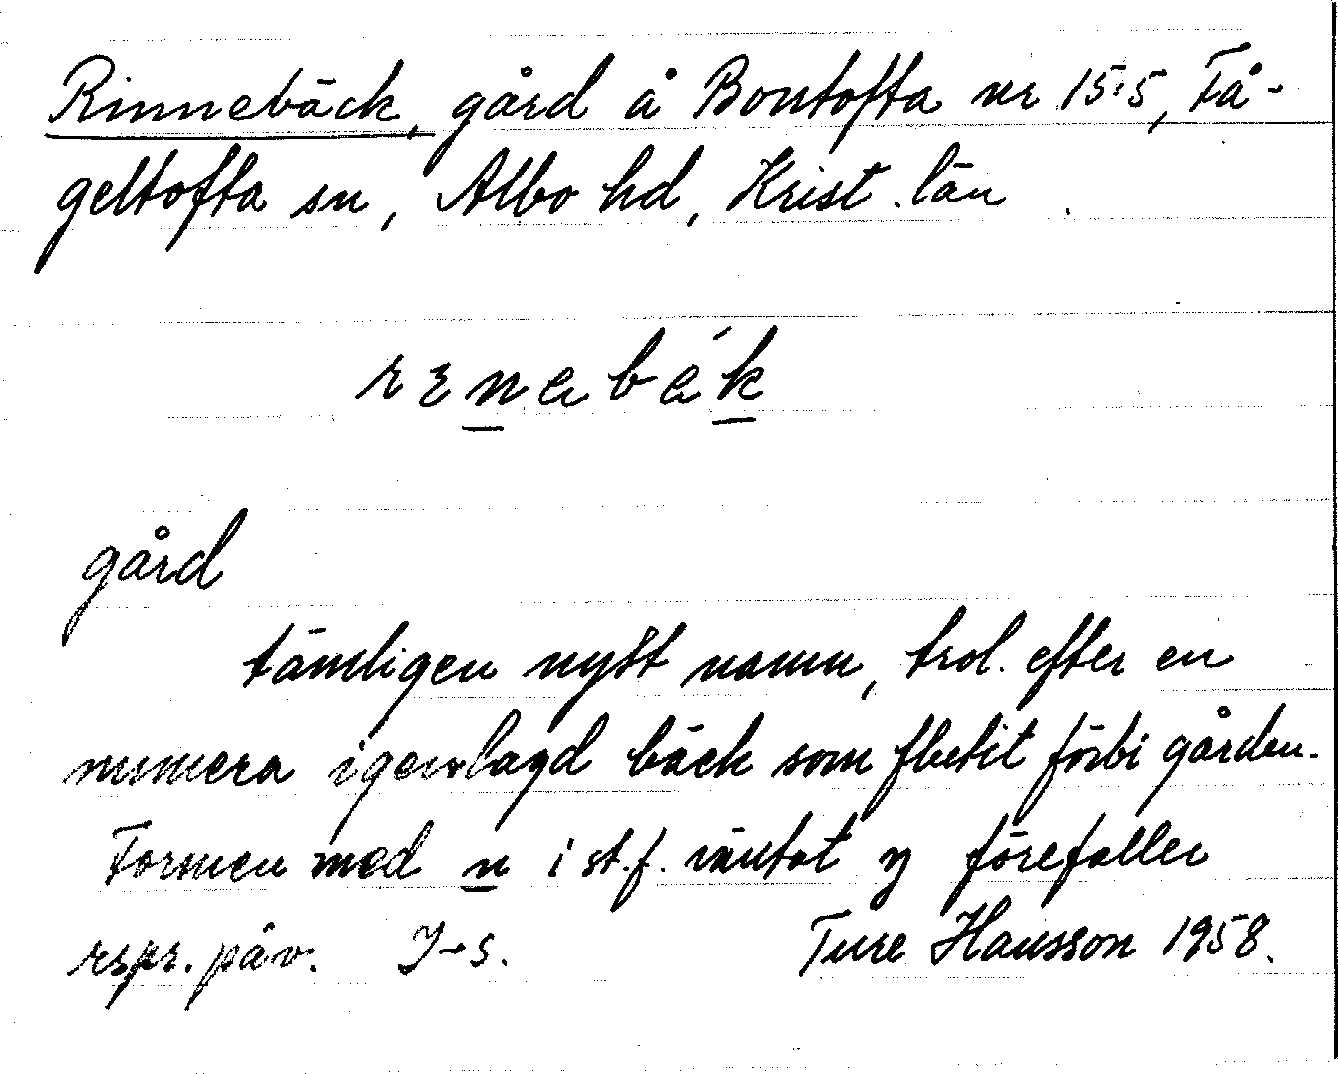 Rinnebäck, gård å Bontofta nr 15:5, Få-
geltofta sn, Albo hd, Krist. län
gård
tämligen nytt namn, trol. efter en
numera igenlagd bäck som flutit förbi gården.
Formen med n i st.f. väntat ŋ förefaller
rspr. påv. I-s. Ture Hansson 1958.